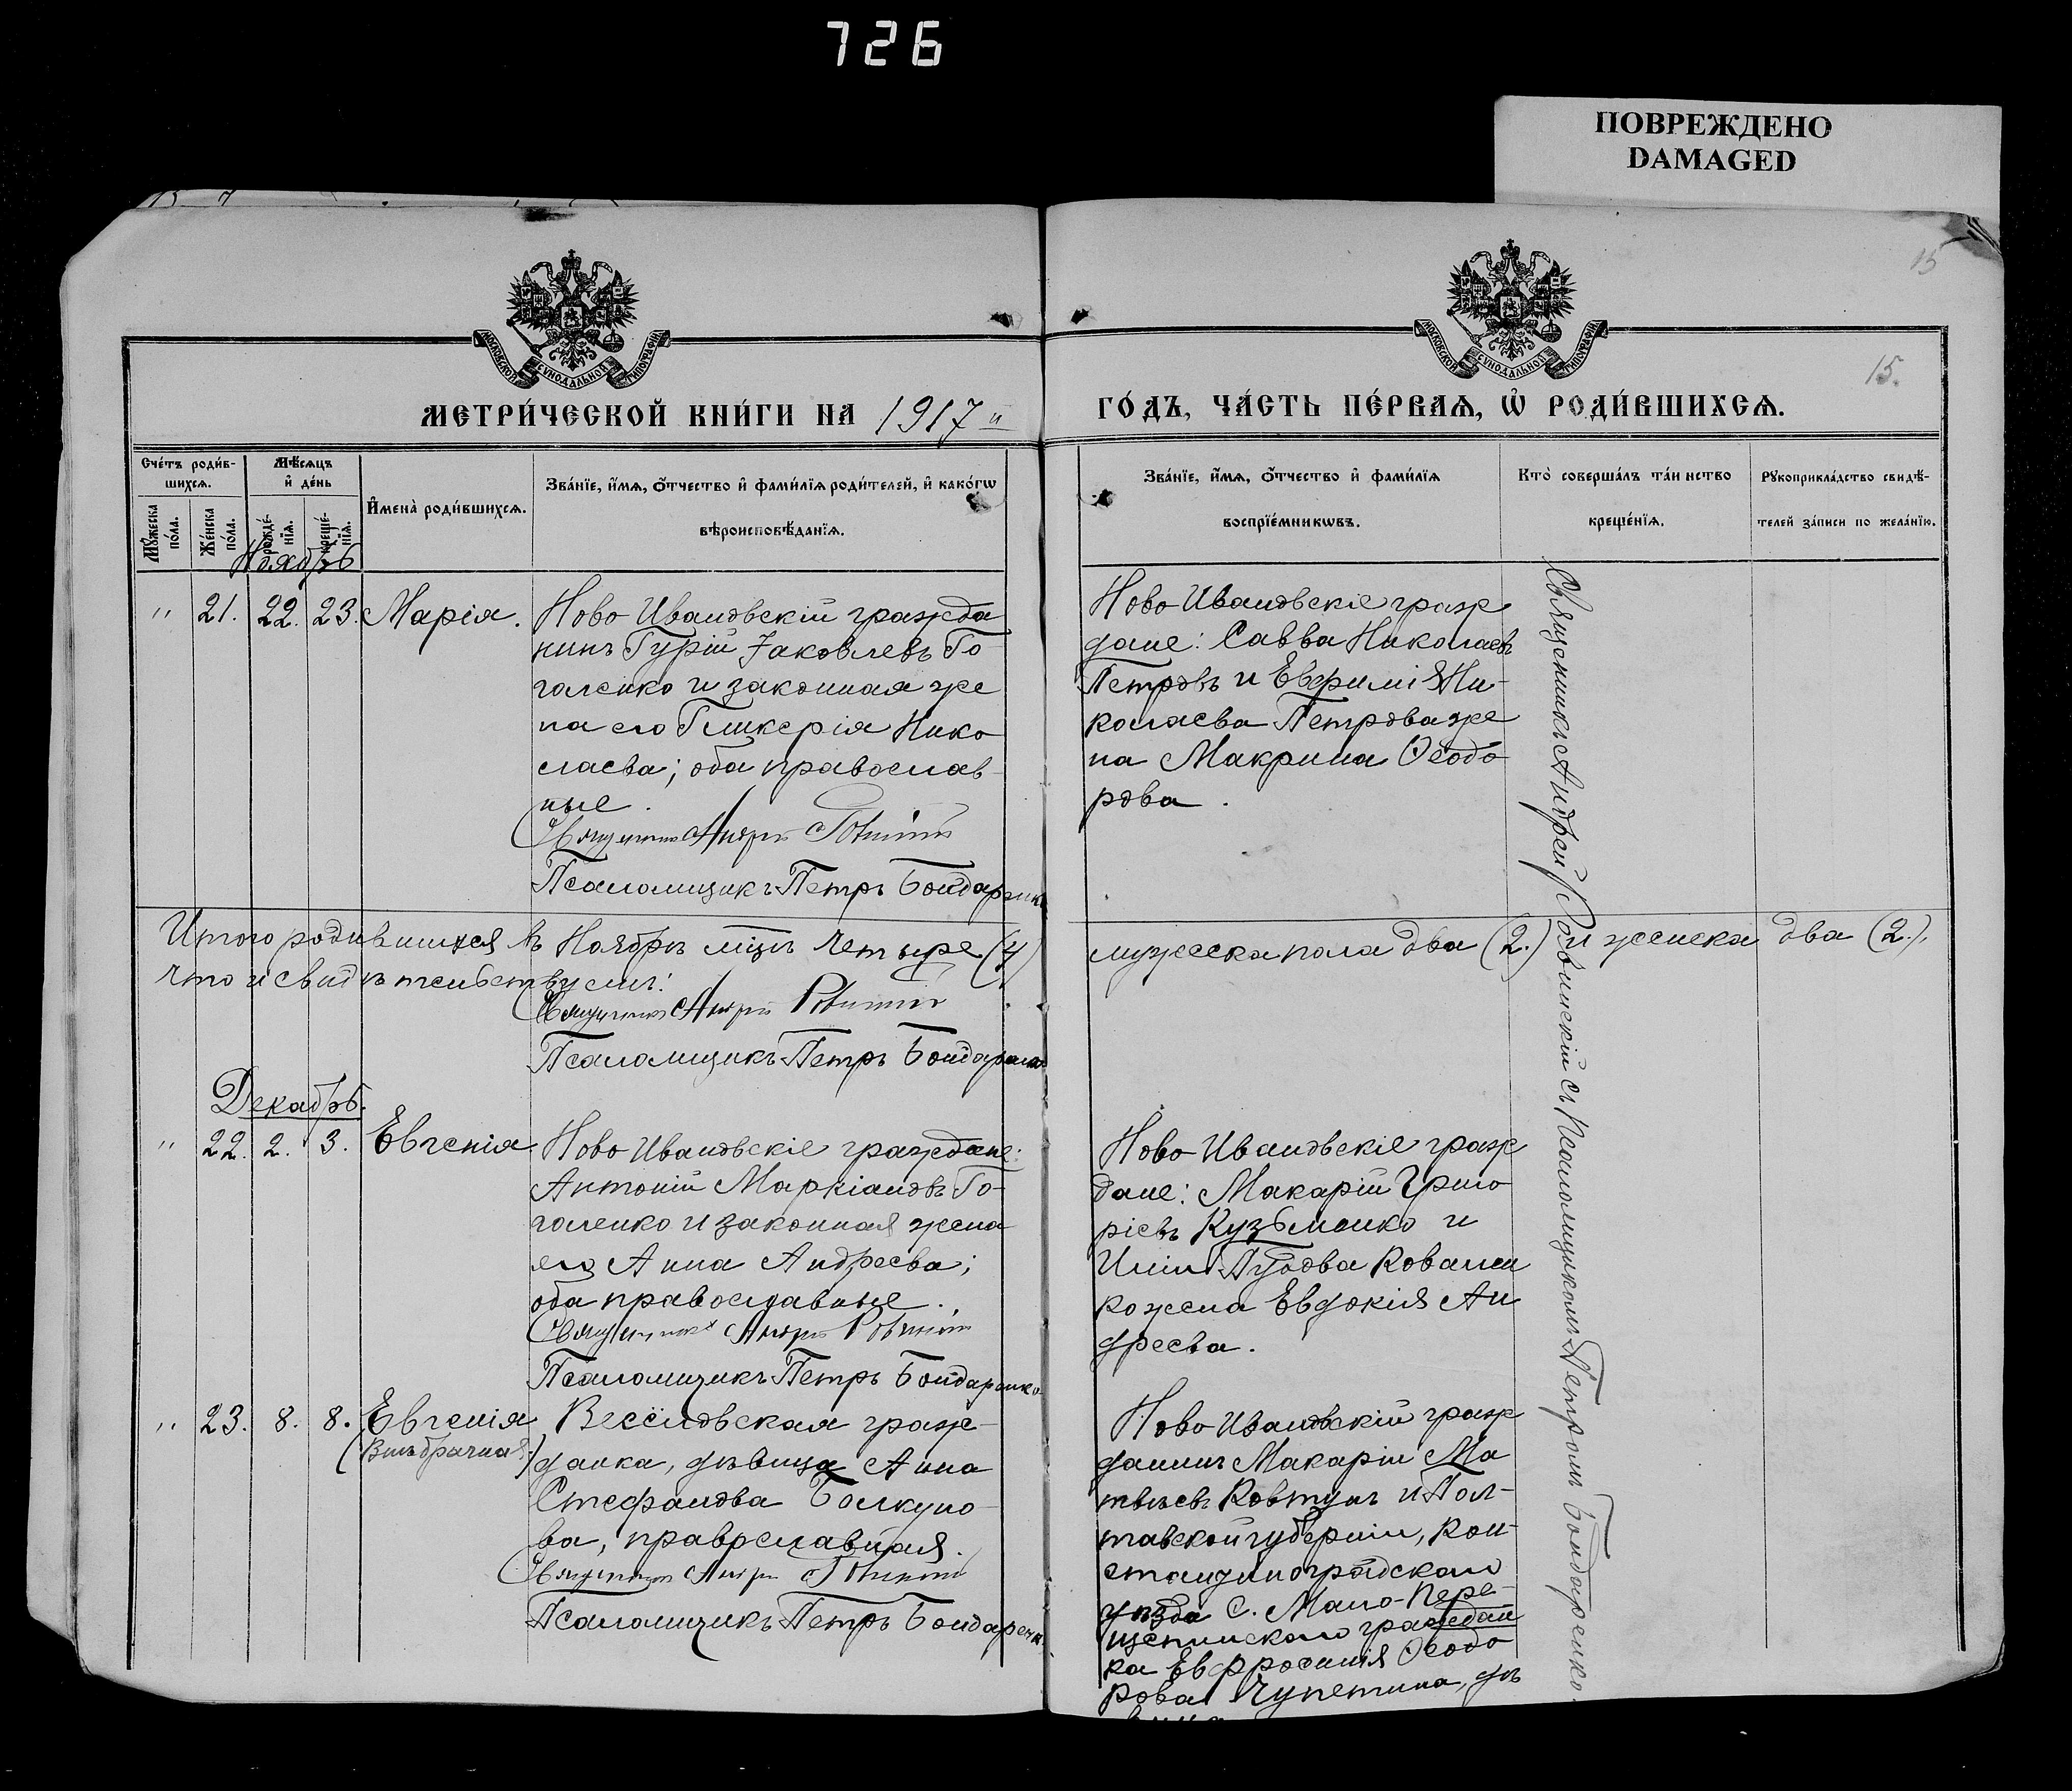 726
ПОВРЕЖДЕНО
DAMAGED
15
15.
МОСКОВСКОЙ СУНОДАЛЬНОЙ ТИПОГРАФІИ
МОСКОВСКОЙ СУНОДАЛЬНОЙ ТИПОГРАФІИ
МЕТРИ́ЧЕСКОЙ КНИ́ГИ НА 1917 й
ГО́ДЪ, ЧА́СТЬ ПЕ́РВАѦ, Ѡ҆ РОДИ́ВШИХСѦ.
Сче́тъ роди́вшихсѧ.
Мѣ́сѧцъ и҆ де́нь
Мꙋ́жеска по́ла.
Же́нска по́ла.
рожде́нїѧ.
креще́нїѧ.
И҆мена̀ роди́вшихсѧ.
Зва́нїе, и҆́мѧ, ѻ҆́тчество и҆ фами́лїѧ роди́телей, и҆ како́гѡ
вѣроисповѣ́данїѧ.
Зва́нїе, и҆́мѧ, ѻ҆́тчество и҆ фами́лїѧ
воспрїе́мникѡвъ.
Кто̀ соверша́лъ та́инство
креще́нїѧ.
Рꙋкоприкла́дство свидѣ́-
телей за́писи по жела́нїю.
Ноябрь
" 21. 22. 23. Марія.
Ново Ивановскій гражда
нинъ Гурій Іаковлевъ Го-
галенко и законная же
на его Гликерія Нико
лаева; оба православ-
ные.
Священникъ Андрей Ровинскій
Псаломщикъ Петръ Бондаренко
Ново Ивановскіе граж
дане: Савва Николаевъ
Петровъ и Евфимія Ни-
колаева Петрова же
на Макрина Ѳеодо
рова.
Священникъ Андрей Ровинскій съ Псаломщикомъ Петромъ Бондаренко.
Итого родившихся въ Ноябрѣ мцѣ четыре (4)
мужеска пола два (2.) и женска два (2.),
что и свидѣтельствуемъ:
Священникъ Андрей Ровинскій
Псаломщикъ Петръ Бондаренко
Декабрь.
" 22. 2. 3. Евгенія
Ново Ивановскіе граждане:
Антоній Маркіановъ Го-
галенко и законная жена
его Анна Андреева;
оба православные.
Священникъ Андрей Ровинскій
Псаломщикъ Петръ Бондаренко
Ново Ивановскіе граж
дане: Макарій Григо
ріевъ Кузьменко и
Ковален
ко жена Евдокія Ан
дреева.
" 23. 8. 8. Евгенія
(Внѣбрачная.)
Весёловская граж-
данка, дѣвица Анна
Стефанова Болкуно-
ва, православная.
Священникъ Андрей Ровинскій
Псаломщикъ Петръ Бондаренк
Ново Ивановскій граж
данинъ Макарій Ма
твѣевъ Ковтунъ и Пол-
тавской губерніи, Кон-
стантиноградскаго
уѣзда С. Мало-Пере-
щепинскаго граждан
ка Евфросинія Ѳеодо
рова Чупетина, дѣ